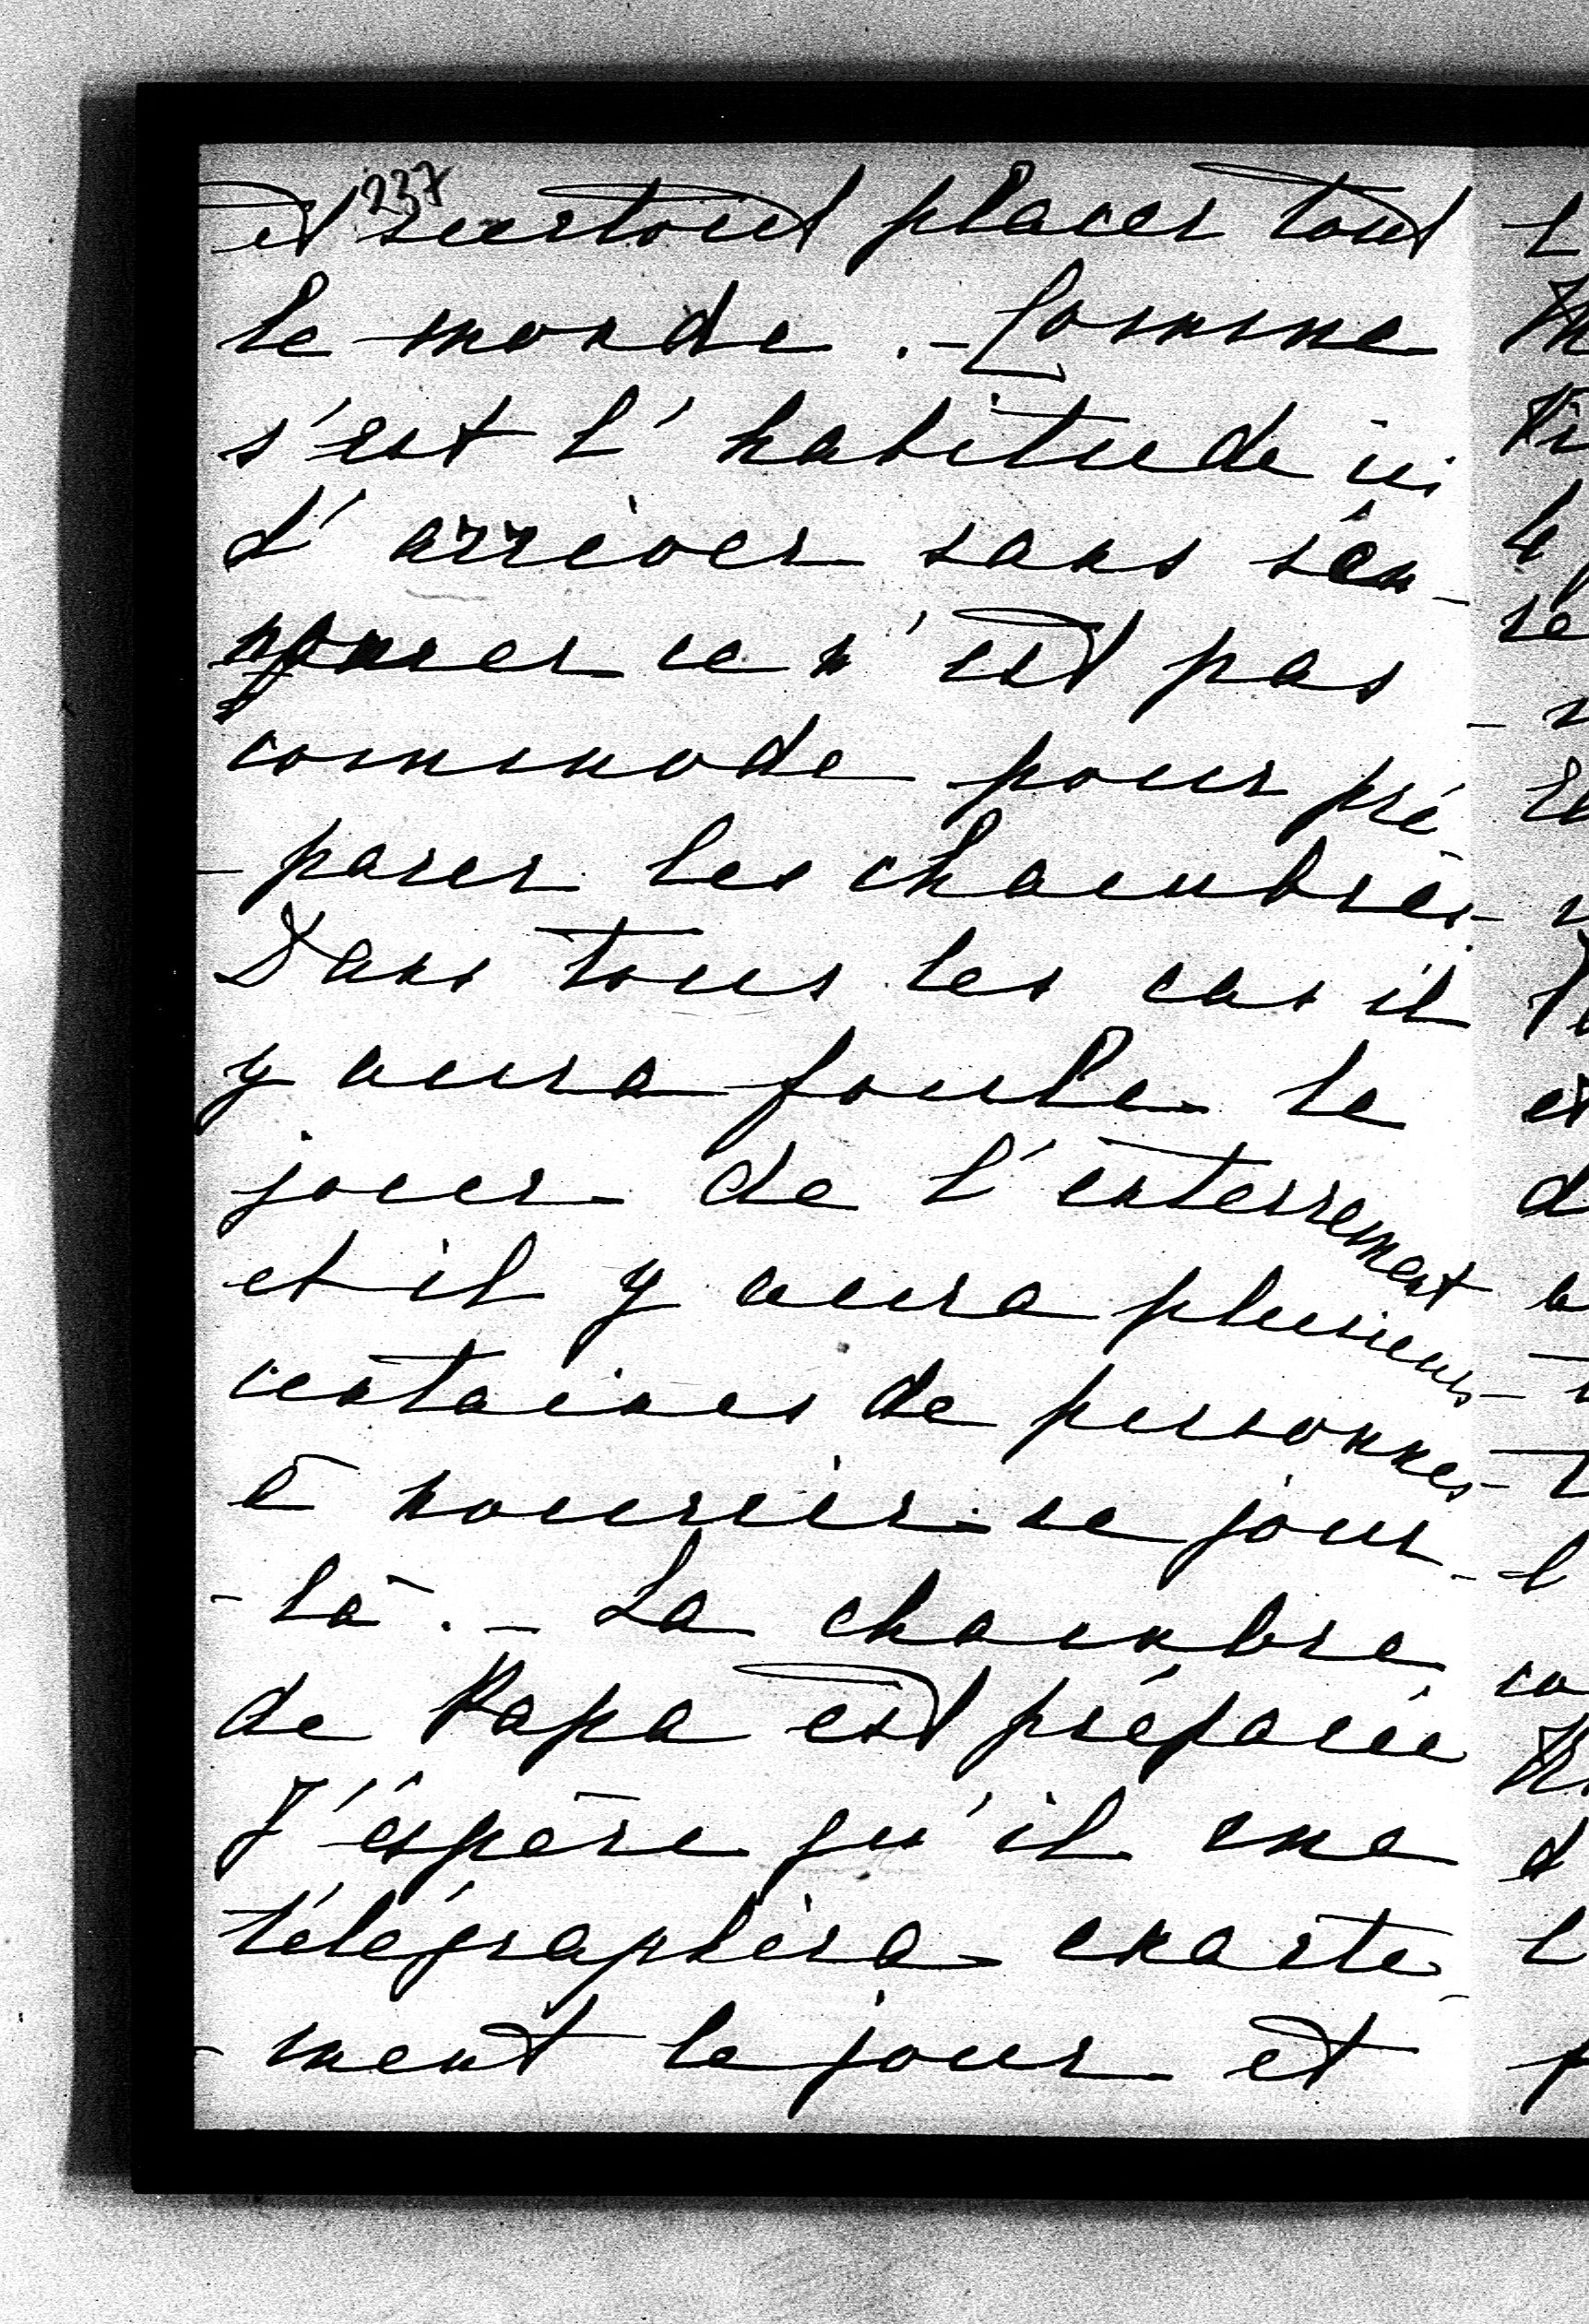 237
et surtout placer tout
le monde. - Comme
s'est l'habitude ici
d'arriver sans s'én-
noncer ce n'est pas
commode pour pré-
-parer les chambres.
Dans tous les cas il
y aura foule le
jour de l'enterrement
et il y aura plusieurs
centaines de personnes
à nourrir ce jour-
-là. - La chambre
de Papa est préparée
J'éspère qu'il me
télégraphira exacte-
-ment le jour et